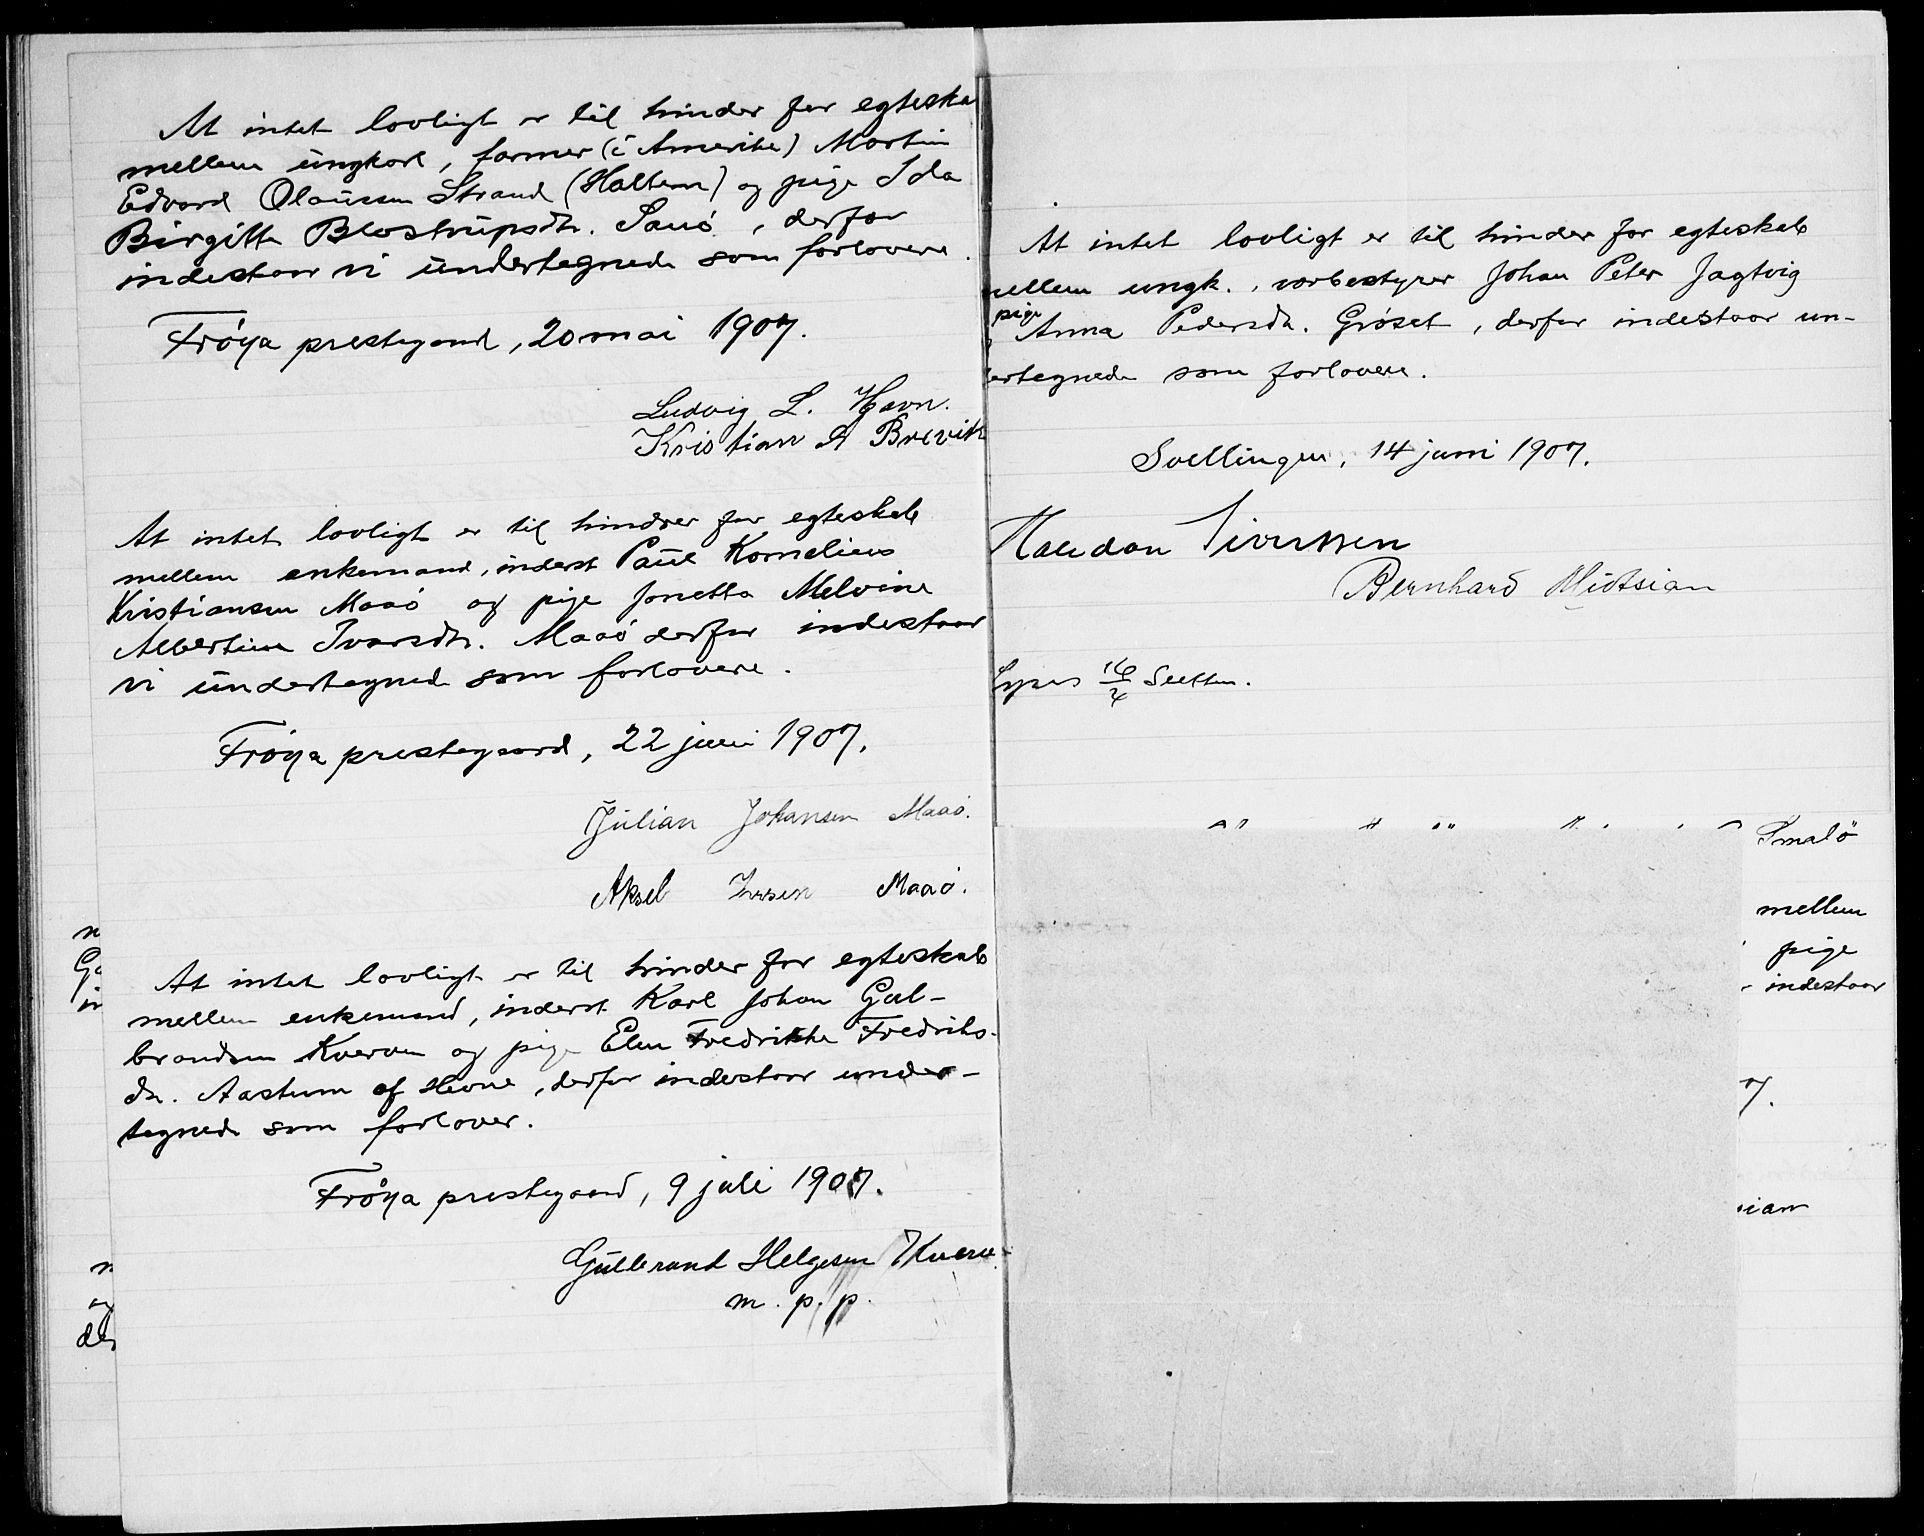 At intet lovligt er til hinder for egteska
mellem ungkarl, farmer (i Amerika) Martin
Edvard Olaussen Strand (Haltern) og pige Ida
Birgitte Blostrupsdtr. Sauø, derfor
indestaar vi undertegnede som forlovere.
Frøya prestegaard, 20 mai 1907.
Ludvig L. Havn.
Kristian A Brevik
At intet lovligt er til hinder for egteskab
mellem enkemand, inderst Paul Kornelius
Kristiansen Maaø og pige Jonetta Melvine
Albertine Ivarsdtr. Maaø derfor indestaar
vi undertegnede som forlovere.
Frøya prestegaard, 22 juni 1907.
Julian Johansen Maaø.
Aksel Maaø.
At intet lovligt er til hinder for egteskab
mellem enkemand, inderst Karl Johan Gul-
brandsen Kverven og pige Elen Fredrikke Fredriks-
dtr. Aastum af Hevne, derfor indestaar under-
tegnede som forlover.
Frøya prestegaard, 9 juli 1907.
Gulbrand Helgesen Kverv
m. p. p.
At intet lovligt er til hinder for egteskab
mellem ungk., værbestyrer Johan Peter Jagtvig
pige
Anna Pedersdtr. Grøset, derfor indestaar un-
ertegnede som forlovere.
Svellingen, 14 juni 1907.
Halvdan Sivertsen
Bernhard Midtsian
Lyses 16/6 Sletten.
Smalø
mellem
pige
indestaar
7.
ian